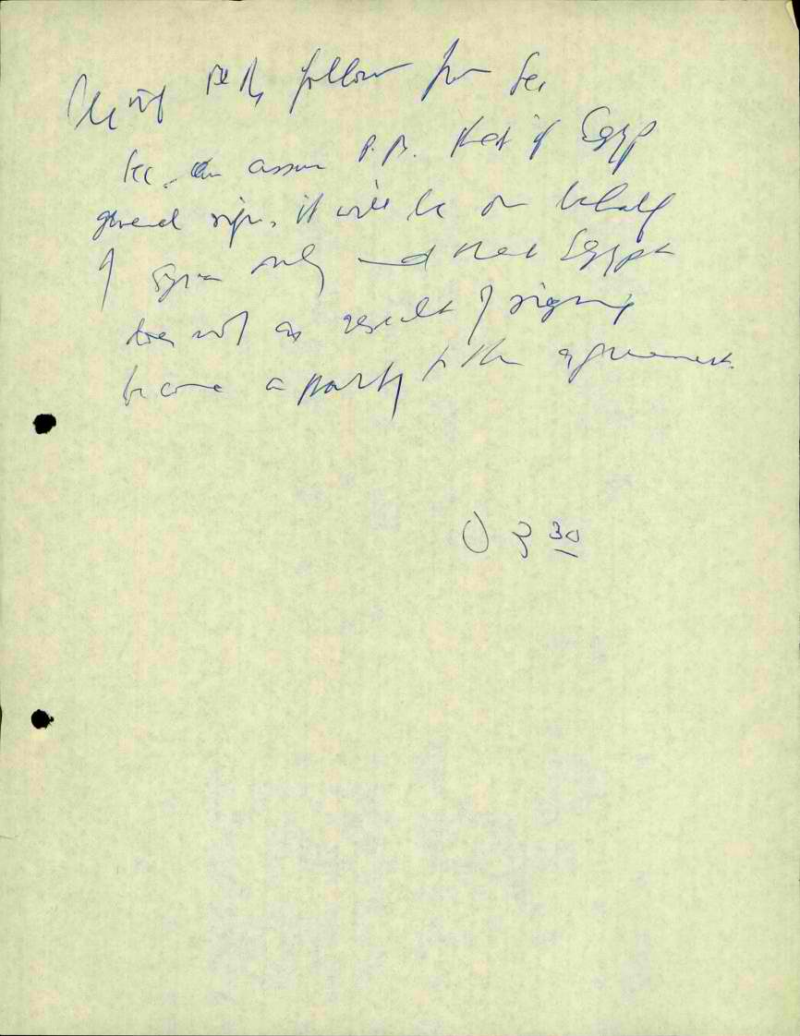 follow from Sec
Sec. can assure P.M. that if Egyp
general signs, it will be on behalf
of Syria only and that Egypt
does not as result of signing
become a party to the agreement.
3 30